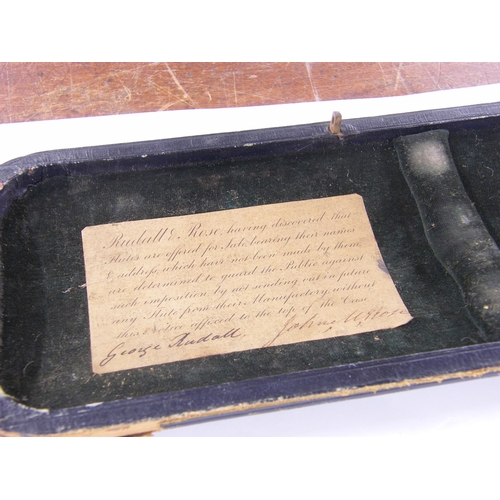 Rudall & Rose, having discovered that
Flutes are offered for Sale, bearing their names
& address, which have not been made by them,
are determined to guard the Public against
such imposition by not sending out in future
any Flute from their Manufactory, without
this Notice affixed to the top of the Case.
George Rudall. John M Rose